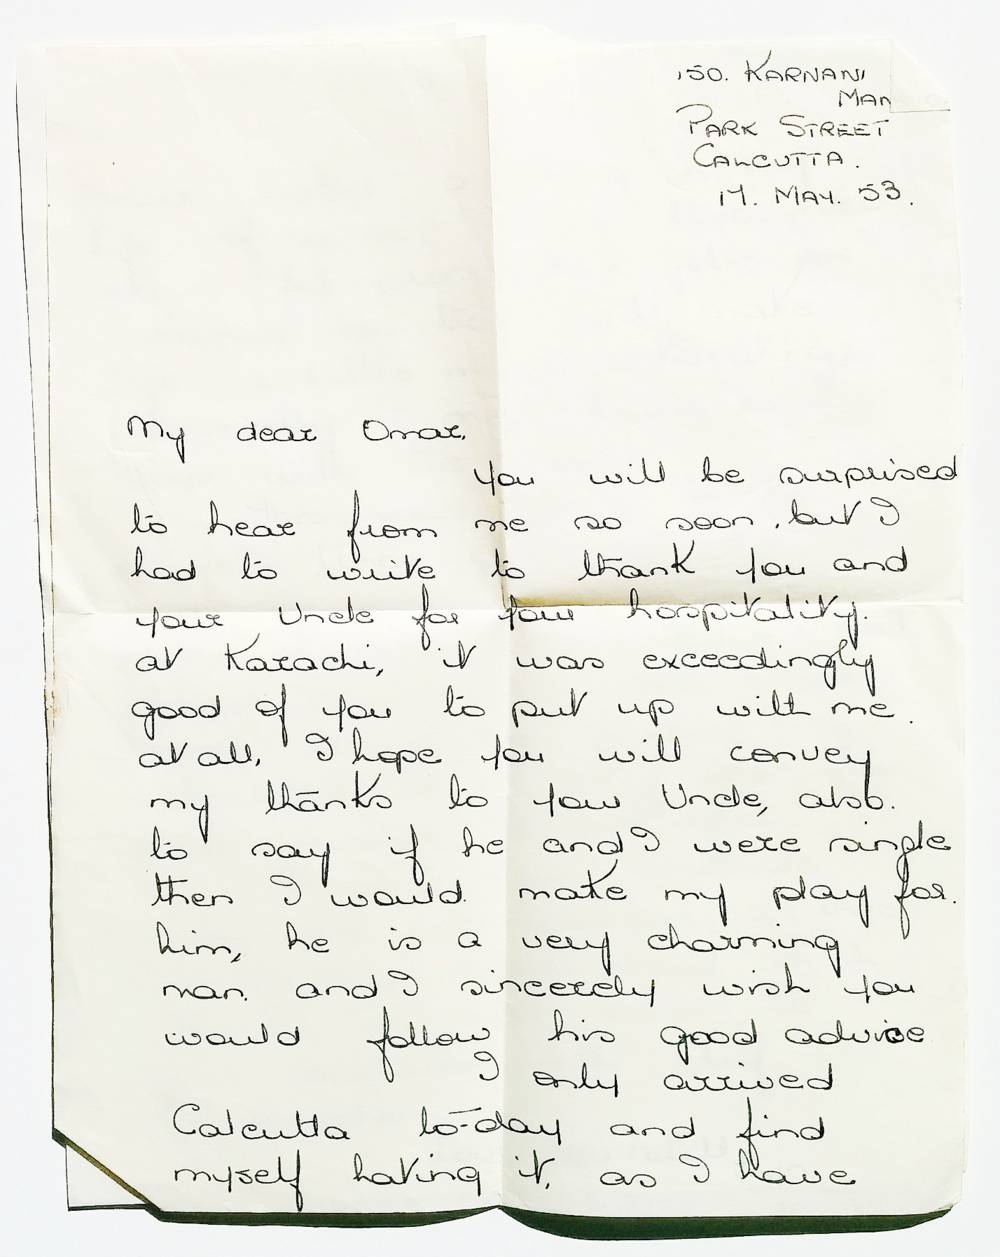 150. KARNANI
MAN
PARK STREET
CALCUTTA.
17. MAY. 53.
My dear Omar,
you will be surprised
to hear from me so soon, but I
had to write to thank you and
your Uncle for your hospitality.
at Karachi, it was exceedingly
good of you to put up with me.
at all, I hope you will convey
my thanks to your Uncle, also.
to say if he and I were single
then I would make my play for.
him, he is a very charming
man. and I sincerely wish you
would follow his good advice
I only arrived
Calcutta to-day and find
myself hating it, as I have